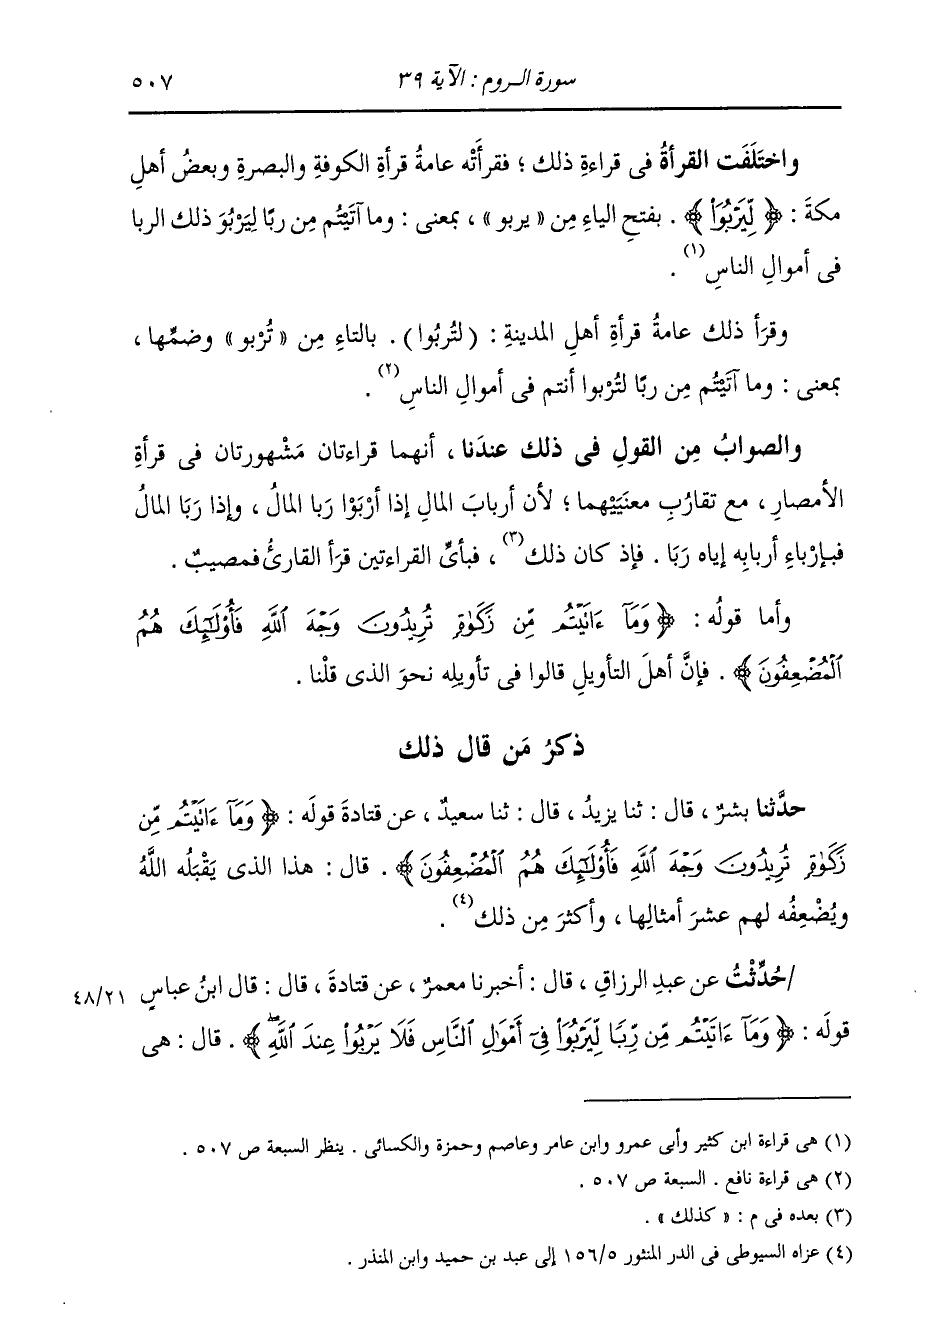 سورة الروم : الآية ٣٩ ٥٠٧
واختَلَفَت القرأةُ فى قراءةِ ذلك ؛ فقرأَتْه عامةُ قرأةِ الكوفةِ والبصرةِ وبعضُ أهلِ
مكةَ : ﴿ لِّيَرْبُوَا۟ ﴾ . بفتحِ الياءِ مِن « يربو » ، بمعنى : وما آتَيْتُم مِن ربًا لِيَرْبُوَ ذلك الربا
فى أموالِ الناسِ (١) .
وقرَأ ذلك عامةُ قرأةِ أهلِ المدينةِ : (لتُربُوا) . بالتاءِ مِن « تُرْبو » وضمِّها ،
بمعنى : وما آتَيْتُم مِن ربًا لتُرْبوا أنتم فى أموالِ الناسِ (٢) .
والصوابُ مِن القولِ فى ذلك عندَنا ، أنهما قراءتان مَشْهورتان فى قرأةِ
الأمصارِ ، مع تقارُبِ معنَيَيْهما ؛ لأن أربابَ المالِ إذا أرْبَوْا رَبا المالُ ، وإذا رَبَا المالُ
فبإرْباءِ أربابِه إياه رَبَا . فإذ كان ذلك (٣) ، فبأىِّ القراءتين قرَأ القارئُ فمصيبٌ .
وأما قولُه : ﴿ وَمَآ ءَاتَيْتُم مِّن زَكَوٰةٍ تُرِيدُونَ وَجْهَ ٱللَّهِ فَأُو۟لَٰٓئِكَ هُمُ
ٱلْمُضْعِفُونَ ﴾ . فإنَّ أهلَ التأويلِ قالوا فى تأويلِه نحوَ الذى قلْنا .
ذكرُ مَن قال ذلك
حدَّثنا بشرٌ ، قال : ثنا يزيدُ ، قال : ثنا سعيدٌ ، عن قتادةَ قولَه : ﴿ وَمَآ ءَاتَيْتُم مِّن
زَكَوٰةٍ تُرِيدُونَ وَجْهَ ٱللَّهِ فَأُو۟لَٰٓئِكَ هُمُ ٱلْمُضْعِفُونَ ﴾ . قال : هذا الذى يَقْبَلُه اللَّهُ
ويُضْعِفُه لهم عشرَ أمثالِها ، وأكثرَ مِن ذلك (٤) .
/حُدِّثْتُ عن عبدِ الرزاقِ ، قال : أخبرنا معمرٌ ، عن قتادةَ ، قال : قال ابنُ عباسٍ ٤٨/٢١
قولَه : ﴿ وَمَآ ءَاتَيْتُم مِّن رِّبًا لِّيَرْبُوَا۟ فِىٓ أَمْوَٰلِ ٱلنَّاسِ فَلَا يَرْبُوا۟ عِندَ ٱللَّهِۖ ﴾ . قال : هى
(١) هى قراءة ابن كثير وأبى عمرو وابن عامر وعاصم وحمزة والكسائى . ينظر السبعة ص ٥٠٧ .
(٢) هى قراءة نافع . السبعة ص ٥٠٧ .
(٣) بعده فى م : « كذلك » .
(٤) عزاه السيوطى فى الدر المنثور ١٥٦/٥ إلى عبد بن حميد وابن المنذر .